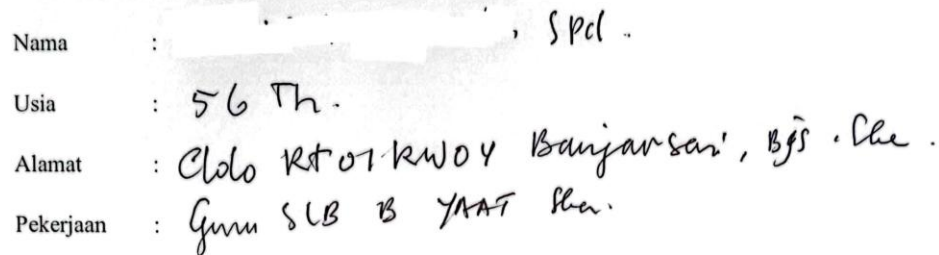 Nama : , SPd.
Usia : 56 Th.
Alamat : Clolo RT 07 RW 04 Banjarsari, Bjs.
Pekerjaan : Guru SLB B YAAT